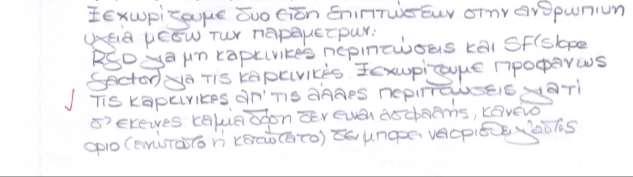 Ξεχωρίζουμε δυο είδη επιπτώσεων στην ανθρώπινη
υγεία μέσω των παραμέτρων:
RSD για μη καρκινικές περιπτώσεις και SF (slope
factor) για τις καρκινικές. Ξεχωρίζουμε προφανώς
τις καρκινικές απ' τις άλλες περιπτώσεις γιατί
σ' εκείνες καμία δόση δεν είναι ασφαλής, κανένα
όριο (ανώτατο ή κατώτατο) δεν μπορεί να ορισθεί γι' αυτές